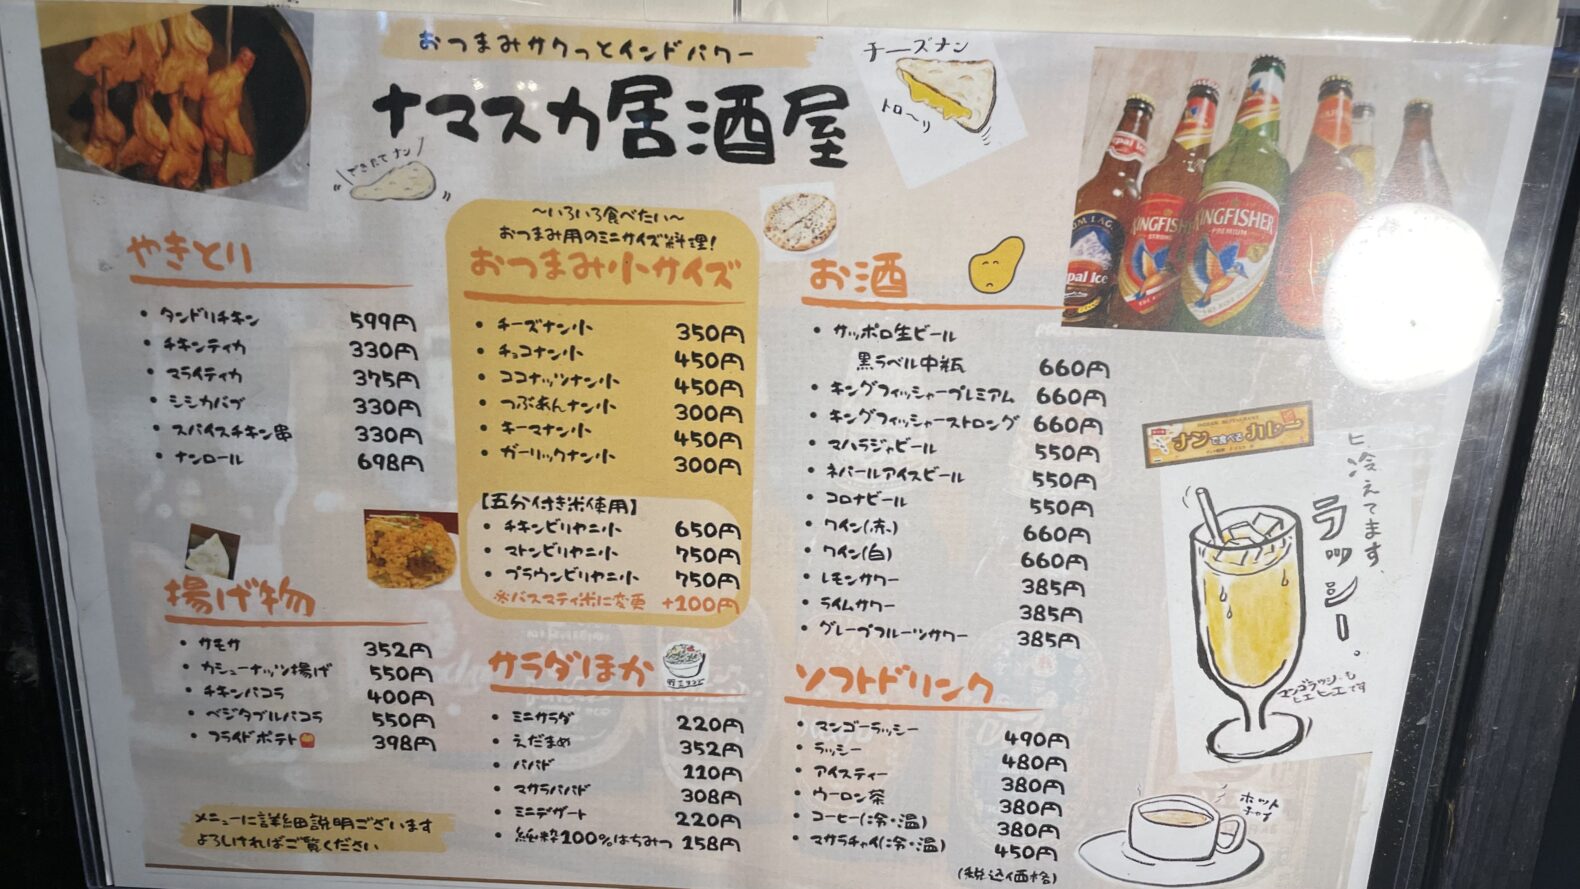 おつまみサクっとインドパワー
ナマスカ居酒屋
チーズナン
トロ〜リ
できたてナン
やきとり
・タンドリチキン 599円
・チキンティカ 330円
・マライティカ 375円
・シシカバブ 330円
・スパイスチキン串 330円
・ナンロール 698円
揚げ物
・サモサ 352円
・カシューナッツ揚げ 550円
・チキンパコラ 400円
・ベジタブルパコラ 550円
・フライドポテト 398円
メニューに詳細説明ございます
よろしければご覧ください
〜いろいろ食べたい〜
おつまみ用のミニサイズ料理!
おつまみ小サイズ
・チーズナン小 350円
・チョコナン小 450円
・ココナッツナン小 450円
・つぶあんナン小 300円
・キーマナン小 450円
・ガーリックナン小 300円
【五分付き米使用】
・チキンビリヤニ小 650円
・マトンビリヤニ小 750円
・プラウンビリヤニ小 750円
※バスマティ米に変更 +200円
サラダほか
・ミニサラダ 220円
・えだまめ 352円
・パパド 110円
・マサラパパド 308円
・ミニデザート 220円
・純粋100%はちみつ 158円
お酒
・サッポロ生ビール
黒ラベル中瓶 660円
・キングフィッシャープレミアム 660円
・キングフィッシャーストロング 660円
・マハラジャビール 550円
・ネパールアイスビール 550円
・コロナビール 550円
・ワイン(赤) 660円
・ワイン(白) 660円
・レモンサワー 385円
・ライムサワー 385円
・グレープフルーツサワー 385円
ソフトドリンク
・マンゴーラッシー 490円
・ラッシー 480円
・アイスティー 380円
・ウーロン茶 380円
・コーヒー(冷・温) 380円
・マサラチャイ(冷・温) 450円
(税込価格)
KINGFISHER
STRONG
KINGFISHER
PREMIUM
ナンで食べるカレー
冷えてます、
ラッシー。
マンゴラッシーも
ヒエヒエです
ホット
チャイ